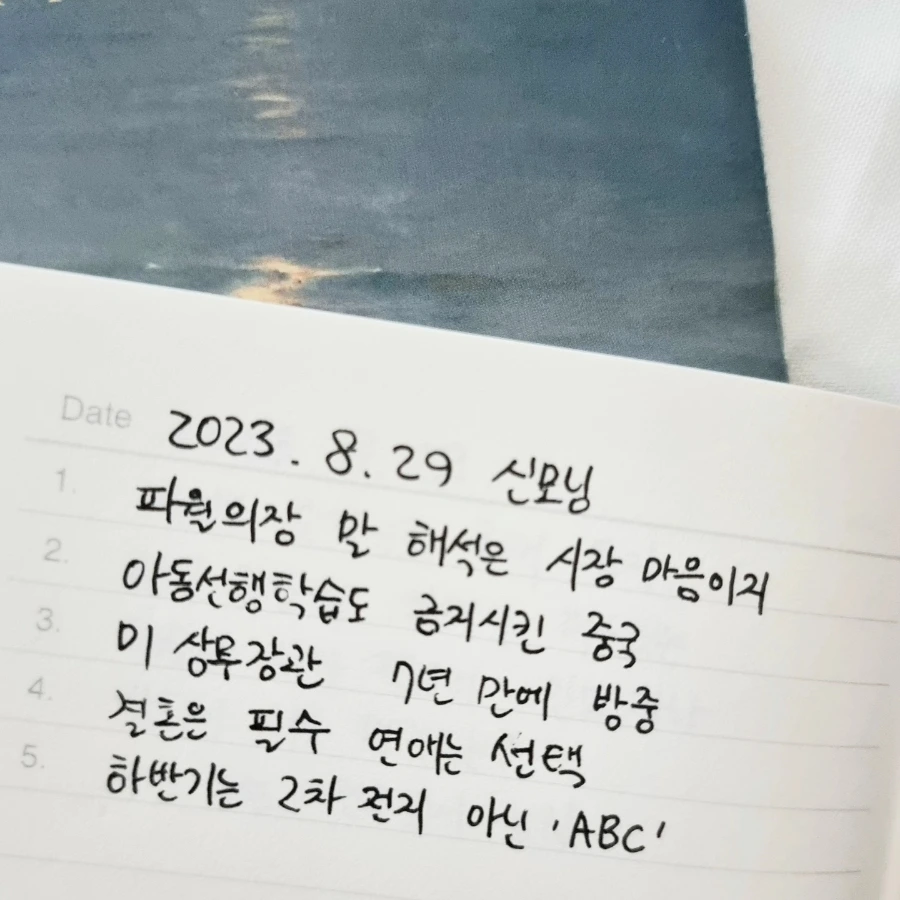 Date 2023. 8. 29 신모닝
1. 파월의장 말 해석은 시장 마음이지
2. 아동선행학습도 금지시킨 중국
3. 미 상무장관 7년 만에 방중
4. 결혼은 필수 연애는 선택
5. 하반기는 2차전지 아닌 'ABC'